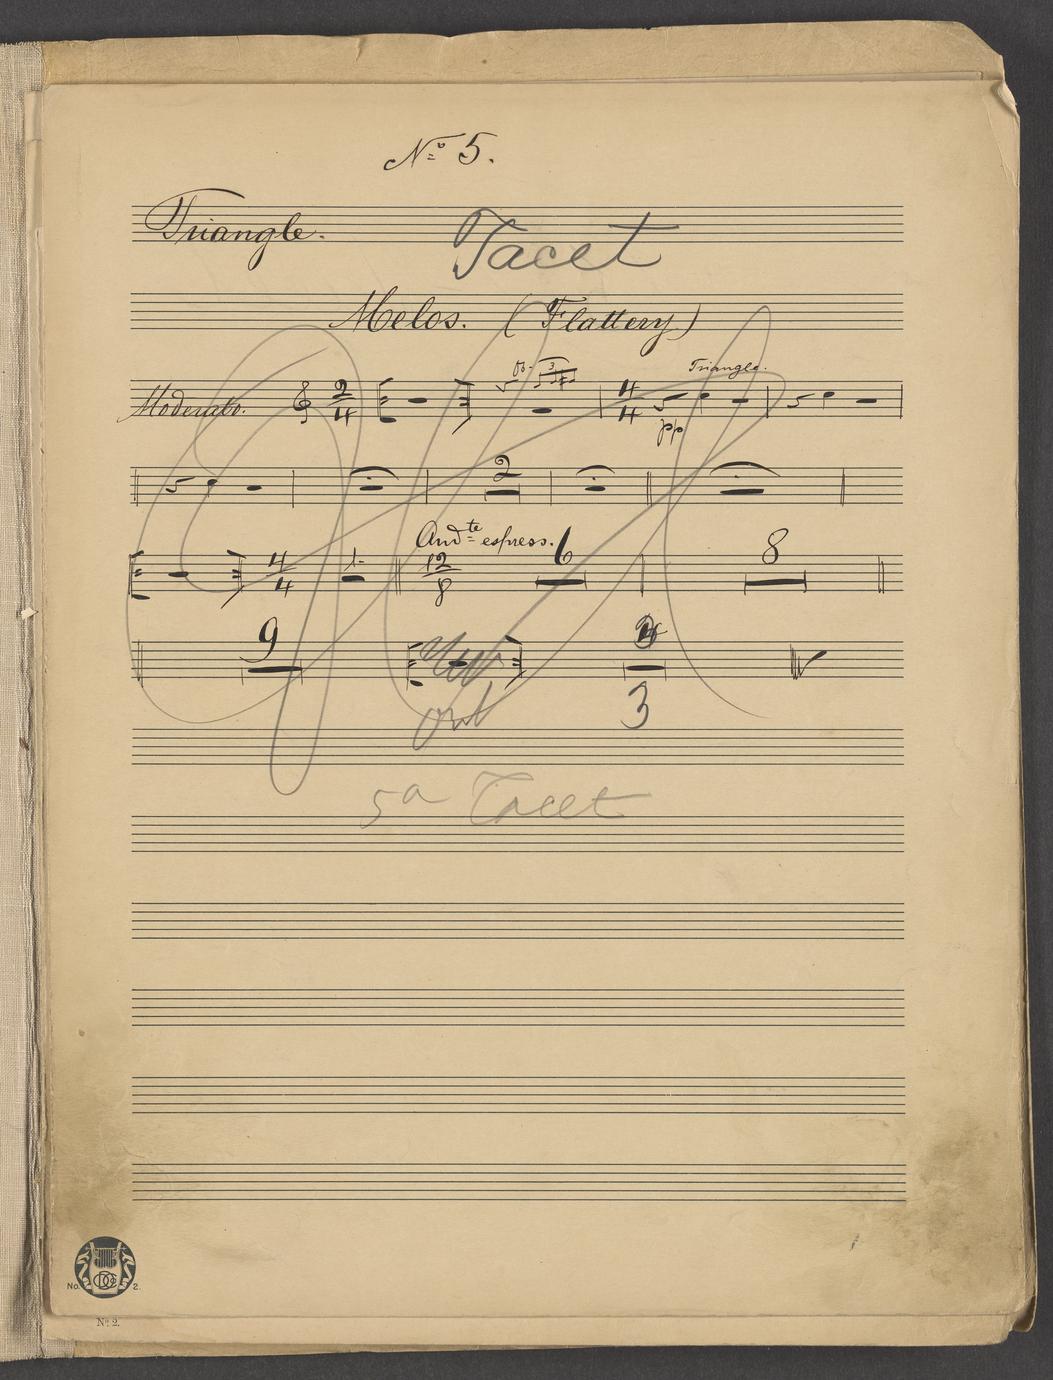 No 5.
Triangle. Tacet
Melos. (Flattery)
Moderato. 2/4 3 4/4 Triangle.
pp
2
4/4 1. Andte espress. 12/8 6 8
9
out 3
5a Tacet
No. 2.
No. 2.